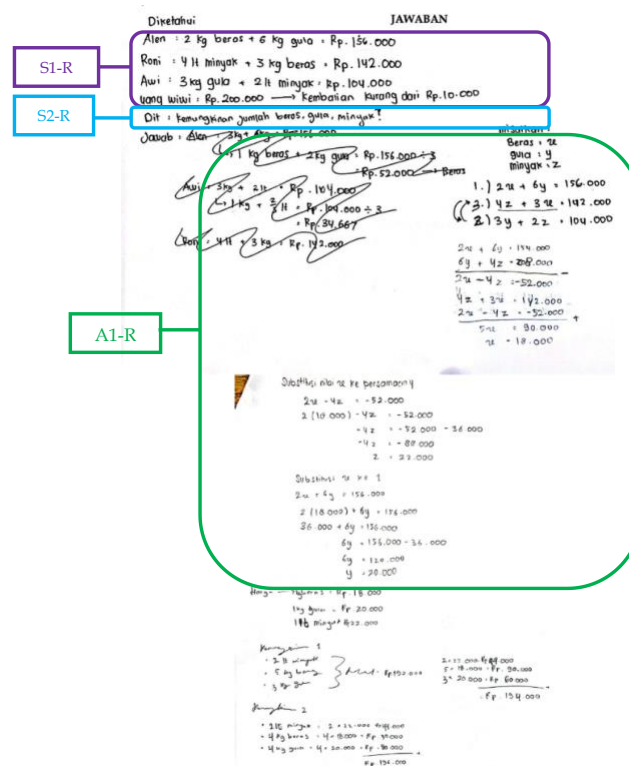 JAWABAN
Diketahui
Alen : 2 kg beras + 6 kg gula = Rp. 156.000
Roni : 4 lt minyak + 3 kg beras = Rp. 142.000
Awi : 3 kg gula + 2 lt minyak = Rp. 104.000
uang wiwi : Rp. 200.000 → Kembalian kurang dari Rp. 10.000
S1-R
S2-R
Dit : kemungkinan jumlah beras, gula, minyak?
Jawab :
1 kg beras + 2 kg gula = Rp. 156.000 ÷ 3
= Rp. 52.000 → Beras
Awi = 3 kg + 2 lt = Rp. 104.000
= Rp. 104.000 ÷ 3
= Rp. 34.667
Roni = 4 lt + 3 kg = Rp. 142.000
Beras : x
gula : y
minyak : z
1.) 2x + 6y = 156.000
3.) 4z + 3x = 142.000
2.) 3y + 2z = 104.000
2x + 6y = 156.000
6y + 4z = 208.000 -
2x - 4z = -52.000
4z + 3x = 142.000
2x - 4z = -52.000 +
5x = 90.000
x = 18.000
A1-R
Substitusi nilai x ke persamaan 4
2x - 4z = -52.000
2 (18.000) - 4z = -52.000
-4z = -52.000 - 36.000
-4z = -88.000
z = 22.000
Substitusi x ke 1
2x + 6y = 156.000
2 (18.000) + 6y = 156.000
36.000 + 6y = 156.000
6y = 156.000 - 36.000
6y = 120.000
y = 20.000
Harga = 1 kg beras = Rp. 18.000
1 kg gula = Rp. 20.000
1 lt minyak Rp 22.000
1
• 2 lt minyak
• 5 kg beras
• 3 kg gula
2 × 22.000 = Rp 44.000
5 × 18.000 = Rp. 90.000
3 × 20.000 = Rp 60.000
= Rp. 194.000
2
• 2 lt minyak = 2 × 22.000
• 4 kg beras = 4 × 18.000
• 4 kg gula = 4 × 20.000 = Rp. 80.000
Rp 196.000